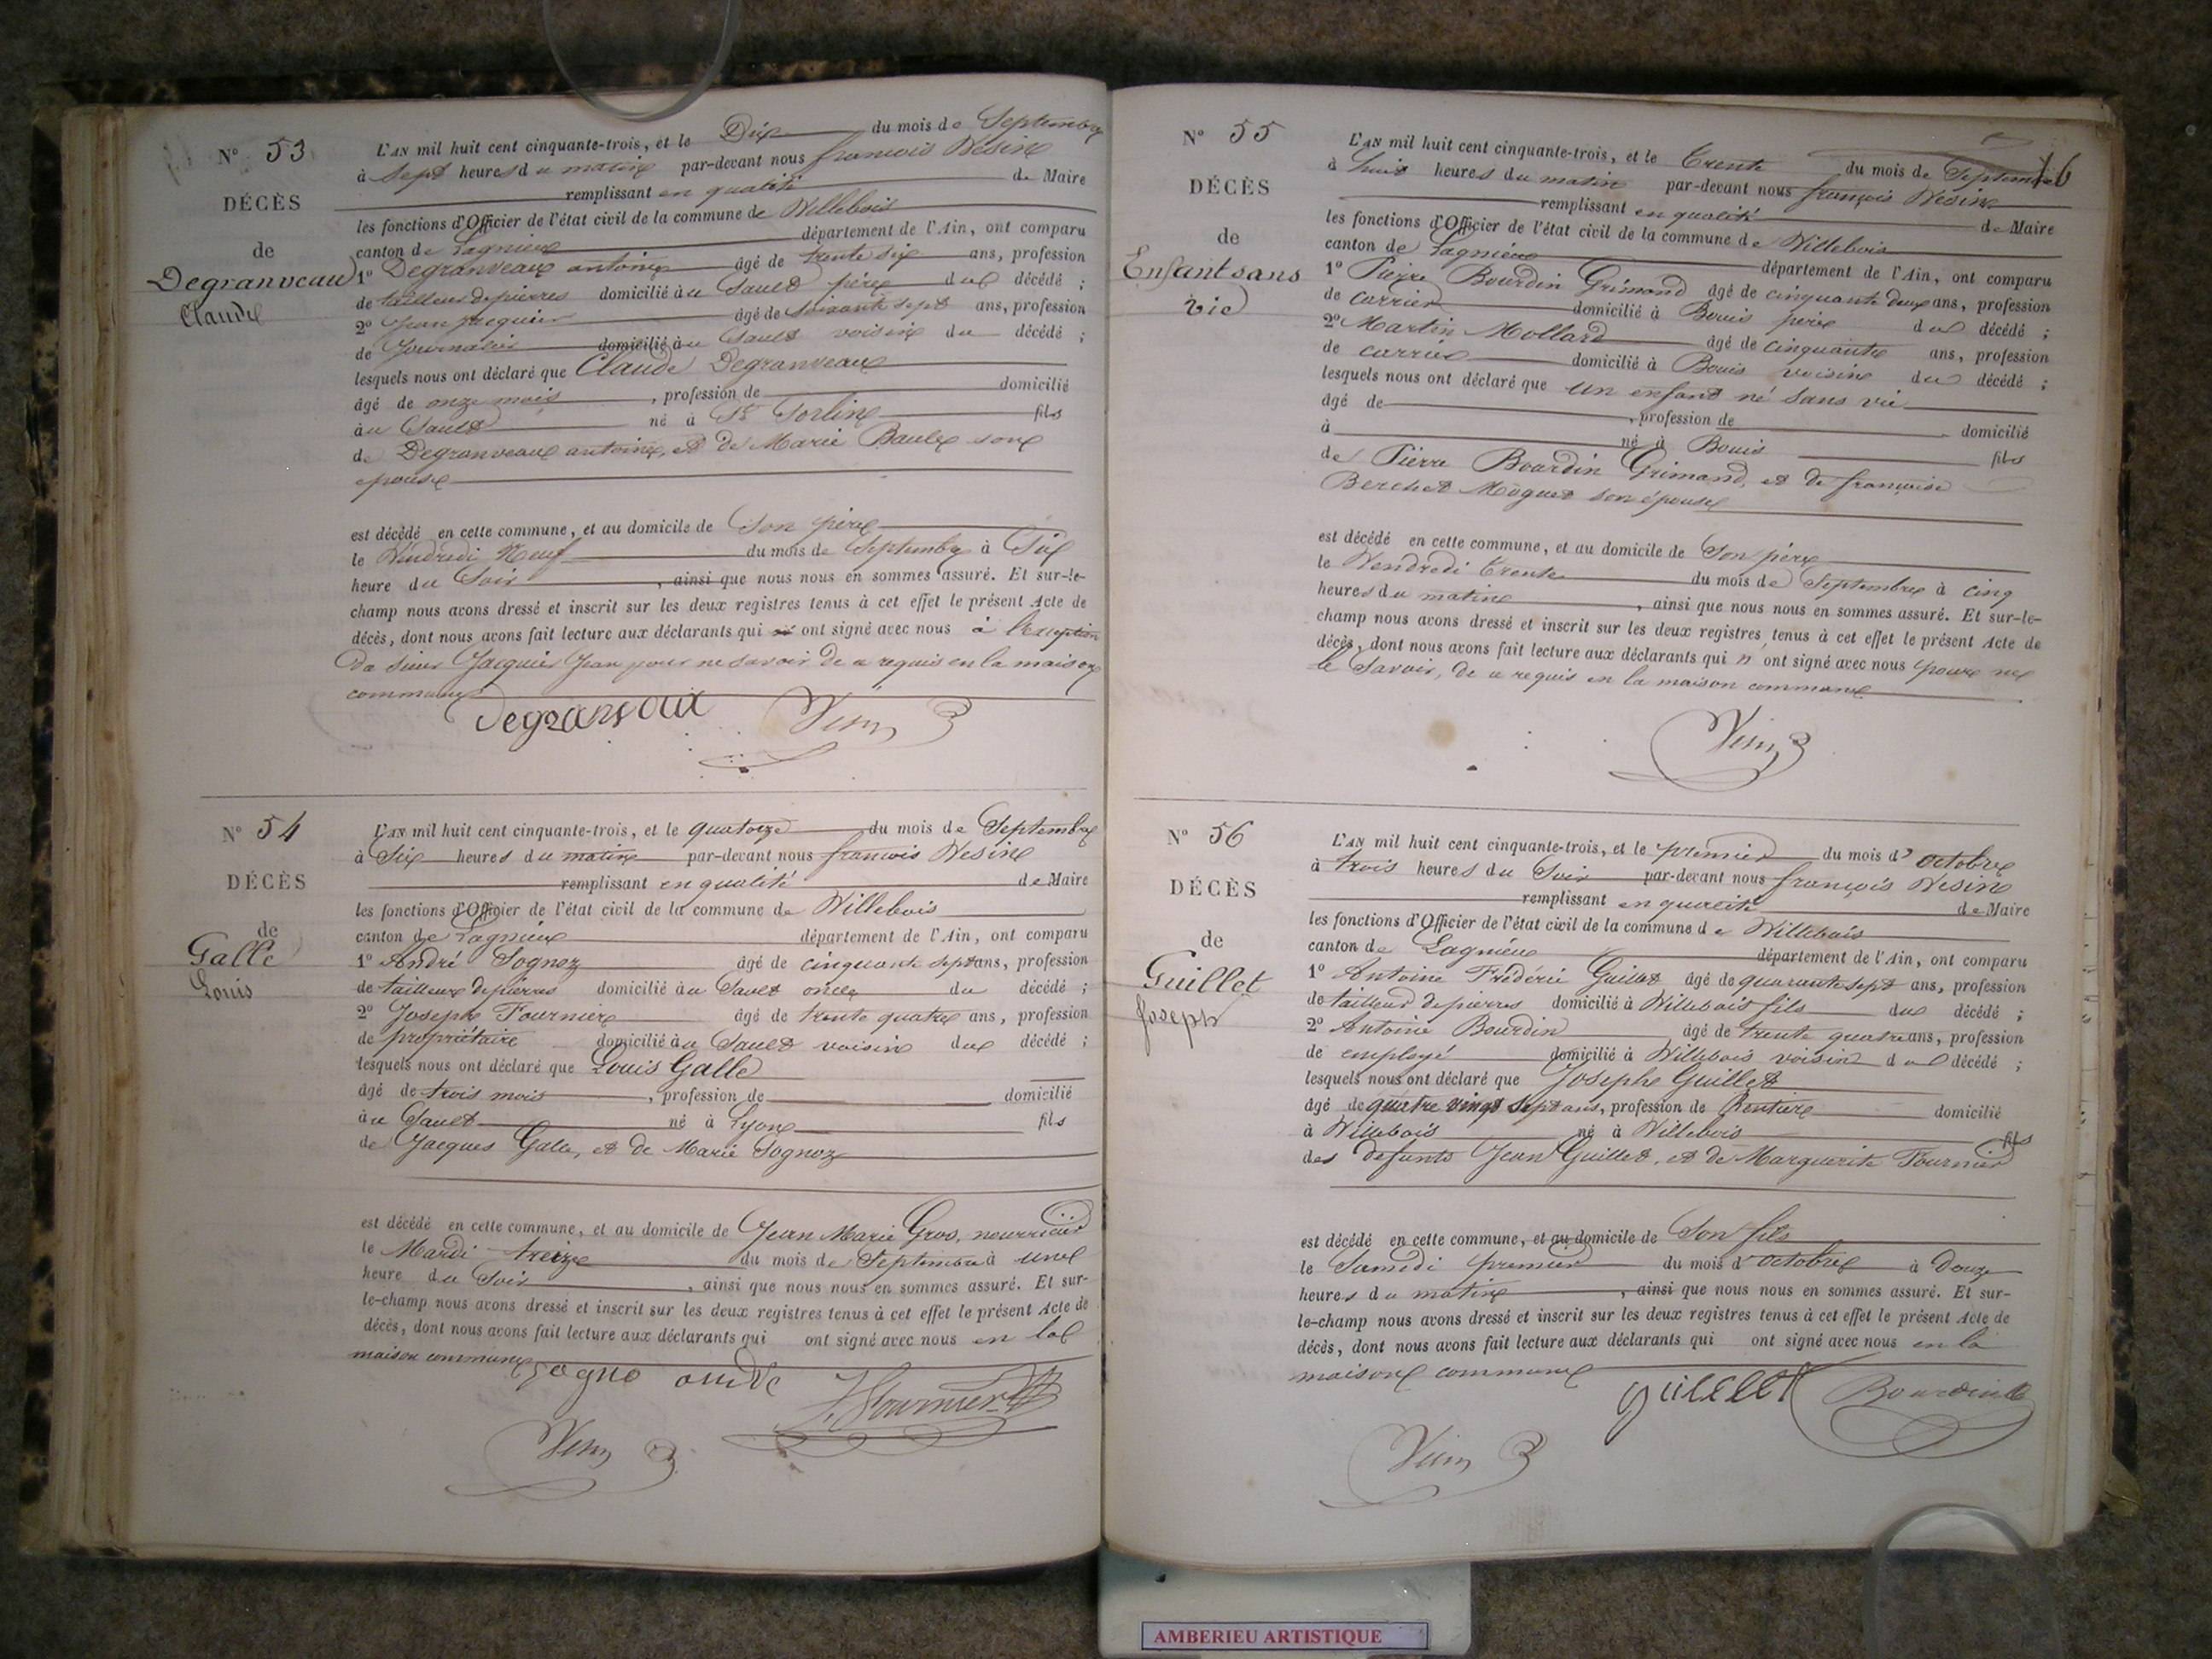 N° 53
DÉCÈS
de
Degranveau
Claude
L'AN mil huit cent cinquante-trois, et le Dix du mois de Septembre
à Sept heures du matin par-devant nous françois Vesin
remplissant en qualité de Maire
les fonctions d'Officier de l'état civil de la commune de Villebois
canton de Lagnieu département de l'Ain, ont comparu
1° Degranveau antoine âgé de trente six ans, profession
de tailleur de pierres domicilié au Sault père du décédé ;
2° Jean Jacquier âgé de soixante sept ans, profession
de Journalier domicilié au Sault voisin du décédé ;
lesquels nous ont déclaré que Claude Degranveau
âgé de onze mois, profession de domicilié
au Sault né à St Sorlin fils
de Degranveau antoine, et de Marie Baule son
epouse
est décédé en cette commune, et au domicile de Son père
le Vendredi Neuf du mois de Septembre à Six
heure du Soir, ainsi que nous nous en sommes assuré. Et sur-le-
champ nous avons dressé et inscrit sur les deux registres tenus à cet effet le présent Acte de
décès, dont nous avons fait lecture aux déclarants qui ont signé avec nous à l'exception
du sieur Jacquier Jean pour ne savoir de ce requis en la maison
commune
Degranvaux Vesin
N° 54
DÉCÈS
de
Galle
Louis
L'AN mil huit cent cinquante-trois, et le quatorze du mois de Septembre
à Six heures du matin par-devant nous francois Vesin
remplissant en qualité de Maire
les fonctions d'Officier de l'état civil de la commune de Villebois
canton de Lagnieu département de l'Ain, ont comparu
1° André Sognoz âgé de cinquante sept ans, profession
de tailleur de pierres domicilié au Sault oncle du décédé ;
2° Joseph Fournier âgé de trente quatre ans, profession
de propriétaire domicilié au Sault voisin du décédé ;
lesquels nous ont déclaré que Louis Galle
âgé de trois mois, profession de domicilié
au Sault né à Lyon fils
de Jacques Galle, et de Marie Sognoz
est décédé en cette commune, et au domicile de Jean Marie Gros, nourricier
le Mardi treize du mois de Septembre à une
heure du Soir, ainsi que nous nous en sommes assuré. Et sur-
le-champ nous avons dressé et inscrit sur les deux registres tenus à cet effet le présent Acte de
décès, dont nous avons fait lecture aux déclarants qui ont signé avec nous en la
maison commune
Fournier
Vesin
16
N° 55
DÉCÈS
de
Enfant sans
vie
L'AN mil huit cent cinquante-trois, et le Trente du mois de Septembre
à huit heures du matin par-devant nous françois Vesin
remplissant en qualité de Maire
les fonctions d'Officier de l'état civil de la commune de Villebois
canton de Lagnieu département de l'Ain, ont comparu
1° Pierre Bourdin Grimand âgé de cinquante deux ans, profession
de carrier domicilié à Bouis père du décédé ;
2° Martin Mollard âgé de cinquante ans, profession
de carrier domicilié à Bouis voisin du décédé ;
lesquels nous ont déclaré que un enfant né sans vie
âgé de, profession de domicilié
à né à Bouis fils
de Pierre Bourdin Grimand, et de françoise
Berchet Moguet son épouse
est décédé en cette commune, et au domicile de Son père
le Vendredi trente du mois de Septembre à cinq
heures du matin, ainsi que nous nous en sommes assuré. Et sur-le-
champ nous avons dressé et inscrit sur les deux registres tenus à cet effet le présent Acte de
décès, dont nous avons fait lecture aux déclarants qui n'ont signé avec nous pour ne
le Savoir, de ce requis en la maison commune
Vesin
N° 56
DÉCÈS
de
Guillet
Joseph
L'AN mil huit cent cinquante-trois, et le premier du mois d'octobre
à trois heures du Soir par-devant nous françois Vesin
remplissant en qualité de Maire
les fonctions d'Officier de l'état civil de la commune de Villebois
canton de Lagnieu département de l'Ain, ont comparu
1° Antoine Frédéric Guillet âgé de quarante sept ans, profession
de tailleur de pierres domicilié à Villebois fils du décédé ;
2° Antoine Bourdin âgé de trente quatre ans, profession
de employé domicilié à Villebois voisin du décédé ;
lesquels nous ont déclaré que Joseph Guillet
âgé de quatre vingt sept ans, profession de Rentier domicilié
à Villebois né à Villebois fils
des defunts Jean Guillet, et de Marguerite Fournier
est décédé en cette commune, et au domicile de Son fils
le Samedi premier du mois d'octobre à Douze
heures du matin, ainsi que nous nous en sommes assuré. Et sur-
le-champ nous avons dressé et inscrit sur les deux registres tenus à cet effet le présent Acte de
décès, dont nous avons fait lecture aux déclarants qui ont signé avec nous en la
maison commune
guillet Bourdin
Vesin
AMBERIEU ARTISTIQUE